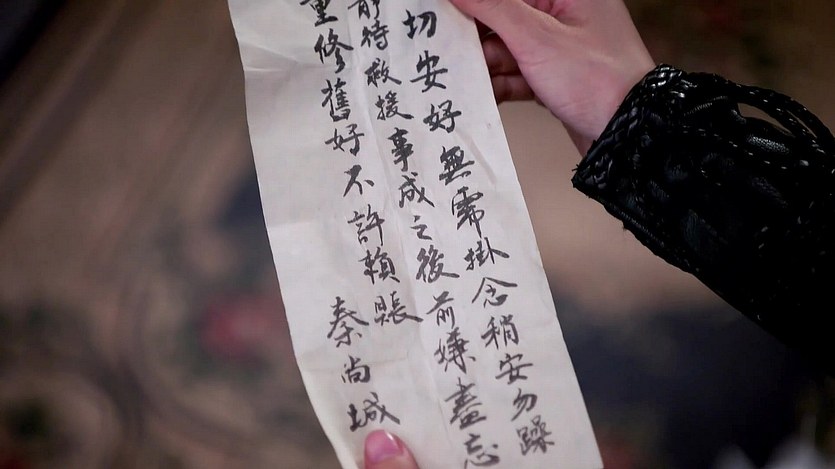 切安好無需掛念稍安勿躁
靜待救援事成之後前嫌盡忘
重修舊好不許賴賬
秦尚城